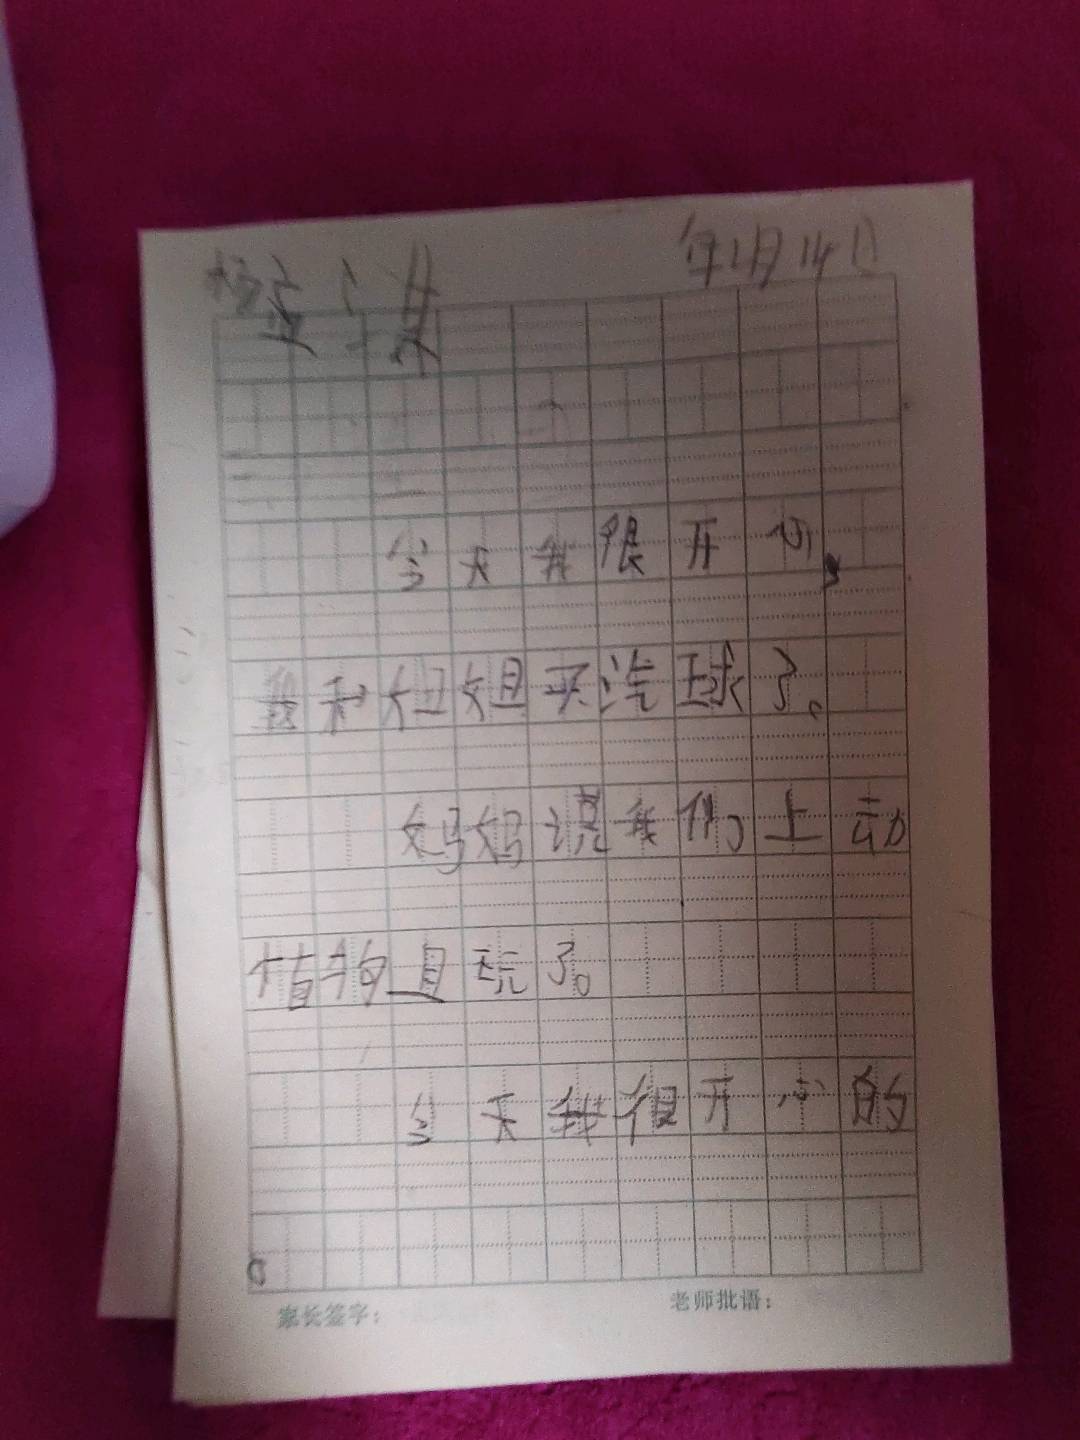 年1月14日
今天我很开心,
我和姐姐买汽球了。
妈妈说我们上动
植物园玩了。
今天我很开心的
。
家长签字： 老师批语：